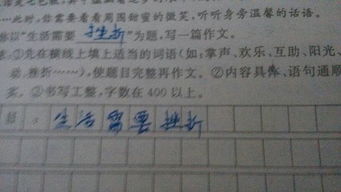 此时,你需要看看周围甜蜜的微笑,听听身旁温馨的话语。
以“生活需要 挫折”为题,写一篇作文。
①先在横线上填上适当的词语(如:掌声、欢乐、互助、阳光、
动、挫折……),使题目完整再作文。②内容具体、语句通顺
③书写工整,字数在400以上。
题:生活需要挫折